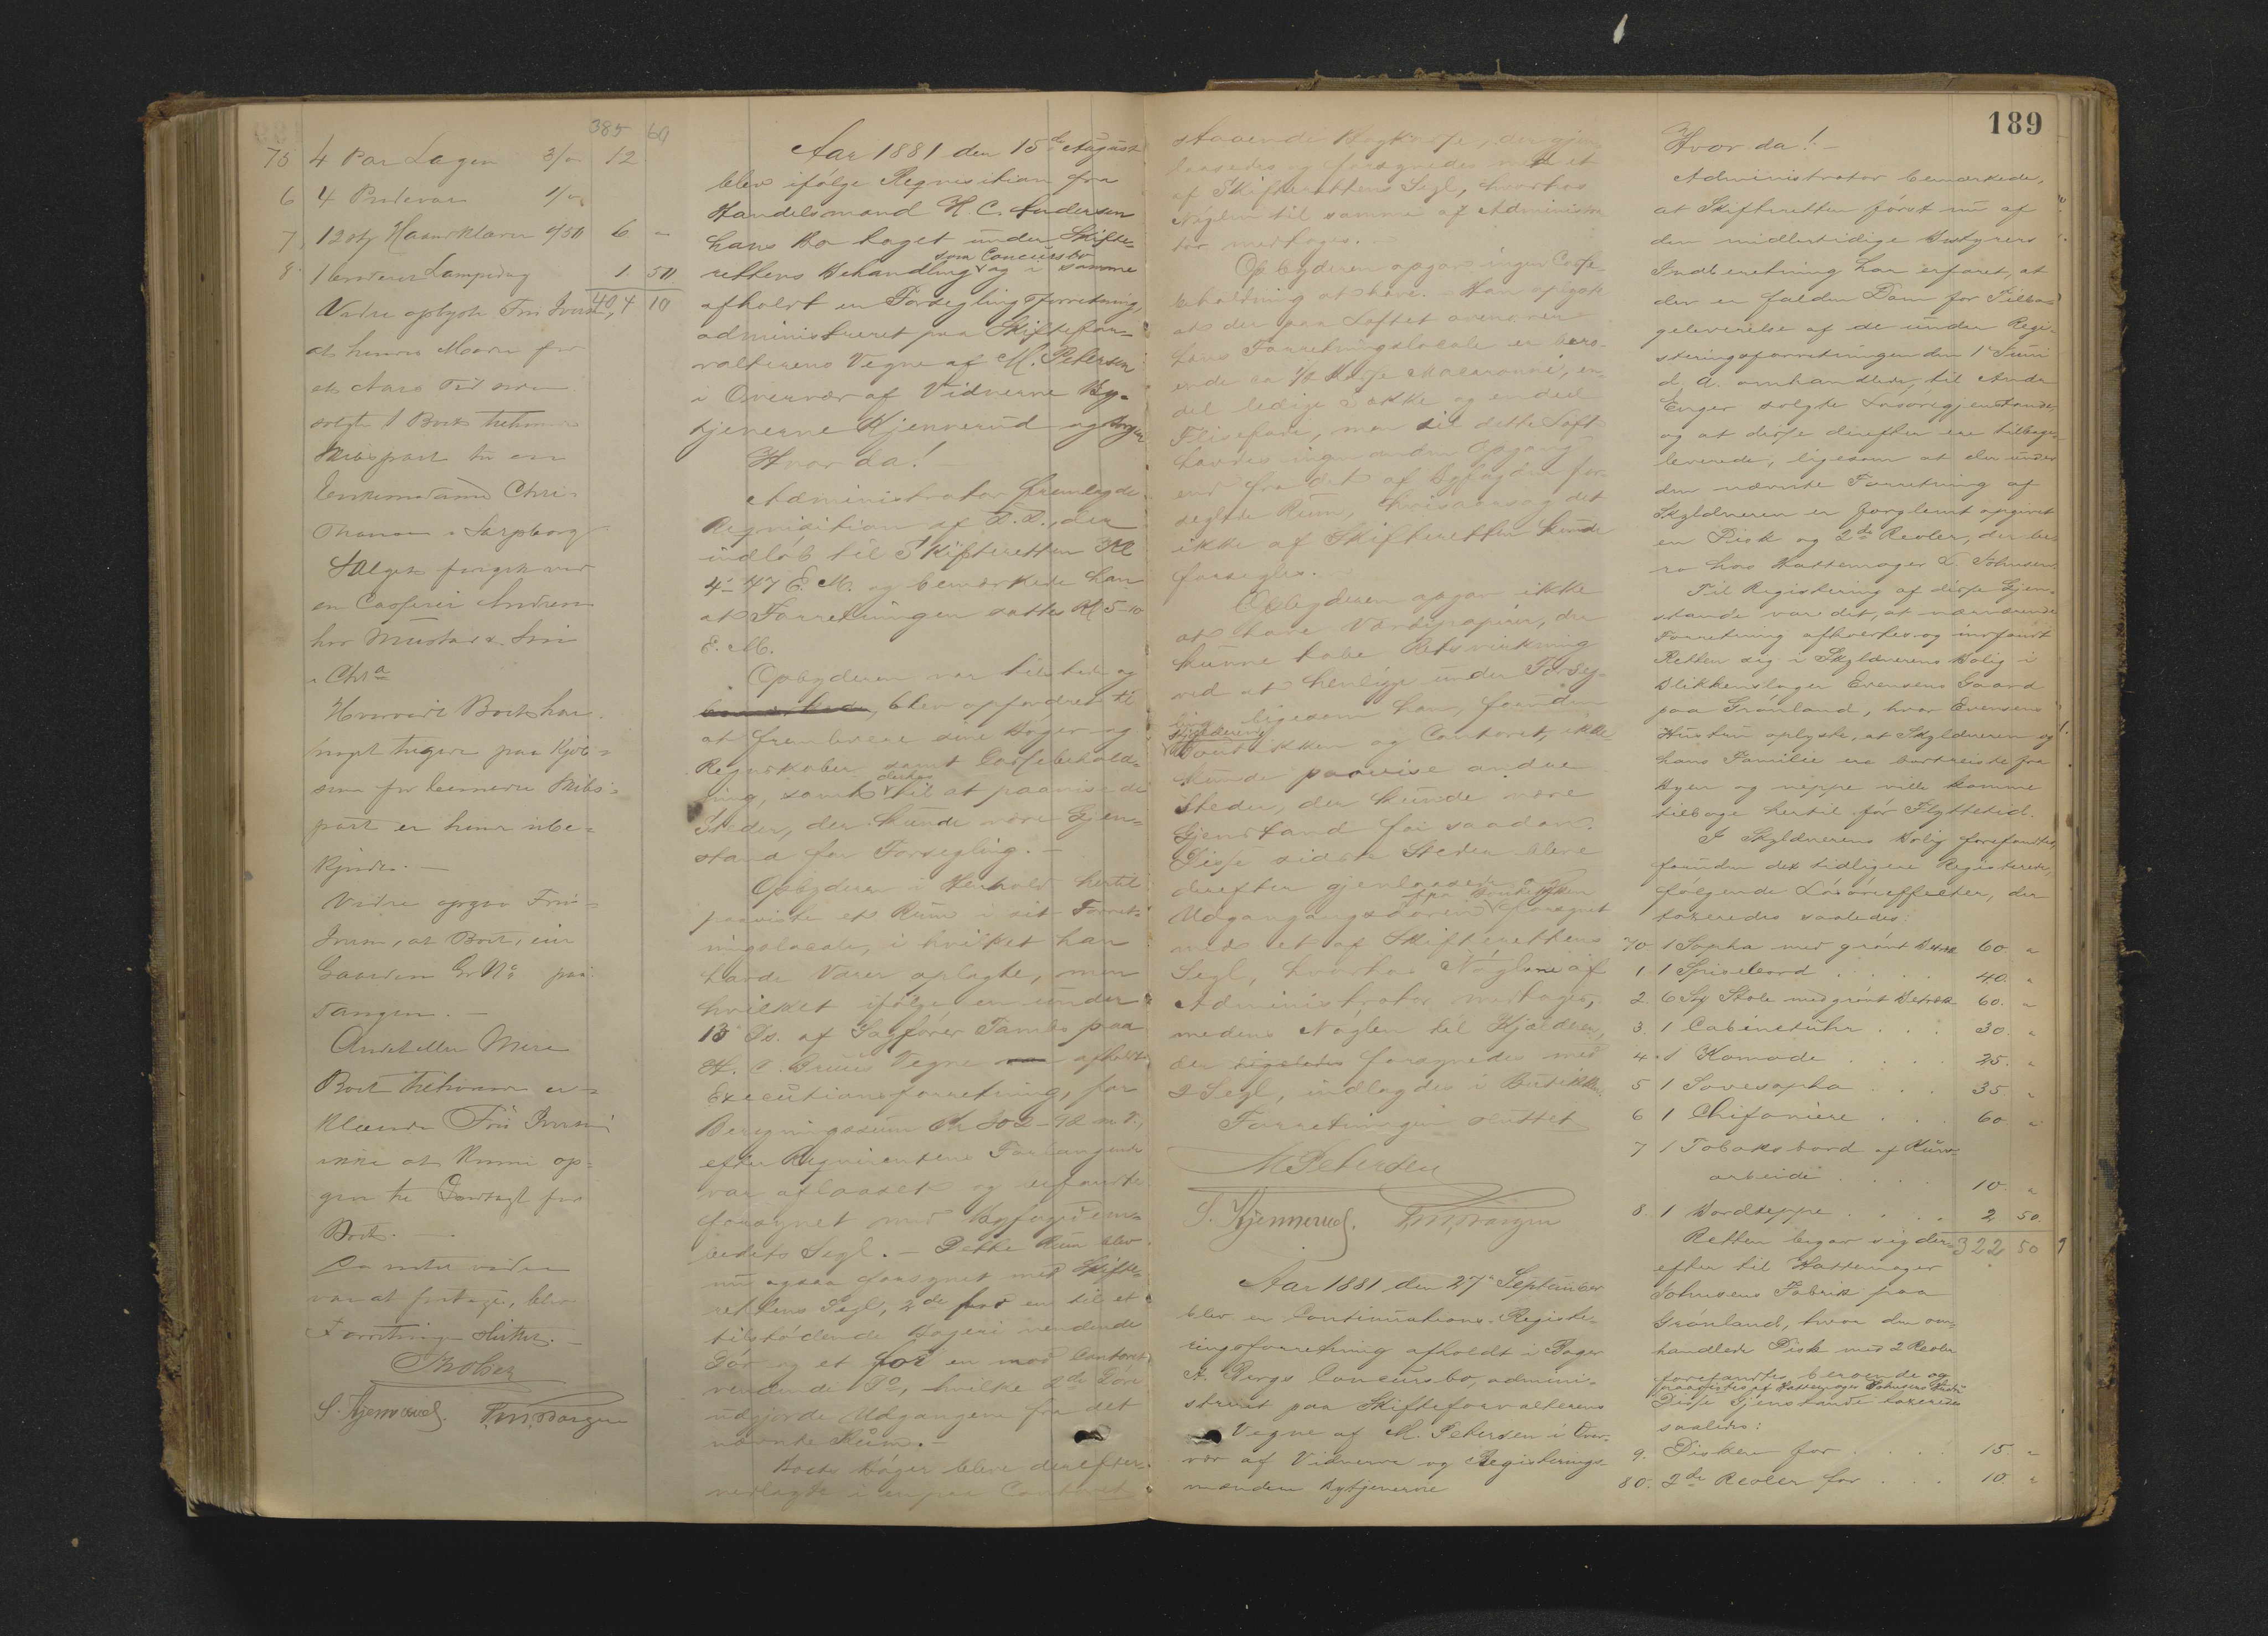 385 60
75 4 Par Lagen 3/" 12
6 4 Pudevar 1/"
7 12 st Haandklæder 0/50 6 "
8 1 Lampe 1 50
404 10
Videre oplyste Fru Iversen,
at hendes Mand for
et Aars Tid siden
solgte
Skibspart til en
i Sarpsborg
Salget foregik ved
en Andersen
hos Mustad & Søn
i Chra
Hvorvidt Boet har
noget tilgode paa Kjøbe-
sum for bemeldte Skibs-
part er hende ube-
kjendt. —
Videre opgav Fru
Iversen, at Boet eier
Gaarden Gr No paa
Tangen. —
Andet eller Mere
Boet tilhørende er-
klærede Fru Iversen
ikke at kunne op-
give til Indtægt for
Boet. —
Da intet videre
var at foretage, blev
Forretningen sluttet. —
S. Kjennerud.
Aar 1881 den 15de August
blev ifølge Reqvisition fra
Handelsmand H. C. Andersen
hans Bo taget under Skifte-
rettens Behandling som Concursbo og i samme
afholdt en Forseglingsforretning,
administreret paa Skiftefor-
valterens Vegne af M. Petersen
i Overvær af Vidnerne By-
tjenerne Kjennerud og Borgen
Hvor da! —
Administrator fremlagde
Reqvisition af D. D., der
indløb til Skifteretten Kl
4-47 E. M. og bemærkede han
at Forretningen sattes Kl 5-10
E. M.
Opbyderen var tilstede og
blev opfordret til
at frembære sine Bøger og
Regnskaber samt Cassebehold-
ning, samt derhos til at paavise de
Steder, der kunde være Gjen-
stand for Forsegling. —
Opbyderen i Henhold hertil
paaviste et Rum i sit Forret-
ningslocale, i hvilket han
havde Varer oplagte, men
hvilket ifølge en under
13 Ds. af Sagfører Tambs paa
Vegne afholdt
Executionsforretning, for
efter Reqvirentens Forlangende
var aflaaset og
forsynet med Byfogedem-
bedets Segl. — Dette Rum blev
nu ogsaa forsynet med Skifte-
rettens Segl, 2de for en til et
tilstødende Bageri vendende
Dør og et for en mod Contoret
vendende Do, hvilke 2de Døre
udgjorde Udgangene fra det
nævnte Rum. —
Boets Bøger bleve derefter
nedlagte i Contoret
staaende der gjen-
laasedes og forsynedes med et
af Skifterettens Segl, hvorhos
Nøglen til samme af Administra-
tor medtoges. —
Opbyderen opgav ingen Casse-
beholdning at have. — Han oplyste
at der paa Loftet ovenover
hans Forretningslocale er bero-
ende ca 1/2 Macaroni, en-
del ledige Sække og endeel
men til dette Loft
havdes ingen anden Opgang
end fra det af Byfogden for-
seglede Rum, hvisaarsag det
ikke af Skifteretten kunde
forsegles. —
Opbyderen opgav ikke
at have Værdipapirer, der
kunne tabe Retsvirkning
ved at henligge under Forseg-
ling ligesom han, foruden
Boutikken og Contoret, ikke
kunde paavise andre
Steder, der kunde være
Gjenstand for saadan.
Disse sidste Steder bleve
derefter gjenlaasede og
Udgangsdøren fra Boutikken forsynet
med et af Skifterettens
Segl, hvorhos Nøglerne af
Administrator medtoges,
medens Nøglen til Kjælderen,
der forsynedes med
2 Segl, indlagdes i Butikken.
Forretningen sluttet
M Petersen
S. Kjennerud.
Aar 1881 den 27de September
blev en Continuations-Registe-
ringsforretning afholdt i Bager
A. Bergs Concursbo, admini-
streret paa Skifteforvalterens
Vegne af M. Petersen i Over-
vær af Vidnerne og Registerings-
mændene Bytjenerne
189
Hvor da! —
Administrator bemærkede,
at Skifteretten først nu af
den midlertidige Bestyrers
Indberetning har erfaret, at
der er falden Dom for Tilba-
geleverelse af de under Regi-
steringsforretningen den 1ste Juni
d. A. omhandlede, til Andr
Enger solgte Løsøregjenstande
og at disse derefter ere tilbage-
leverede, ligesom at der under
den nævnte Forretning af
Skyldneren er forglemt opgivet
en Disk og 2de Reoler, der be-
ro hos Hattemager L. Johnsen.
Til Registering af disse Gjen-
stande var det, at nærværende
Forretning afholdtes og indfandt
Retten sig i Skyldnerens Bolig i
Blikkenslager Evensens Gaard
paa Grønland, hvor Evensens
Hustru oplyste, at Skyldneren og
hans Familie ere bortreiste fra
Byen og neppe ville komme
tilbage hertil før Flyttetid.
I Skyldnerens Bolig forefandtes
foruden det tidligere Registerede,
følgende Løsøreffecter, der
taxeredes saaledes:
70. 1 Sopha med grønt Betræk 60. "
1 1 Spisebord . . . 40. "
2. 6 St Stole med grønt Betræk 60. "
3. 1 Cabinetuhr . . . 30. "
4. 1 Komode . . . 25. "
5 1 Sovesopha . . . 35. "
6 1 Chifoniere . . . 60. "
7 1 Tobaksbord af Kurv-
arbeide . . . 10. "
8. 1 Bordteppe . . . 2 50.
322 50
Retten begav sig der-
efter til Hattemager
Johnsens Fabrik paa
Grønland, hvor den om-
handlede Disk med 2 Reoler
forefandtes beroende og
paavistes af Hattemager Johnsens Hustru
Disse Gjenstande taxeredes
saaledes:
9. Disken for . . . 15. "
80. 2de Reoler for . . . 10. "